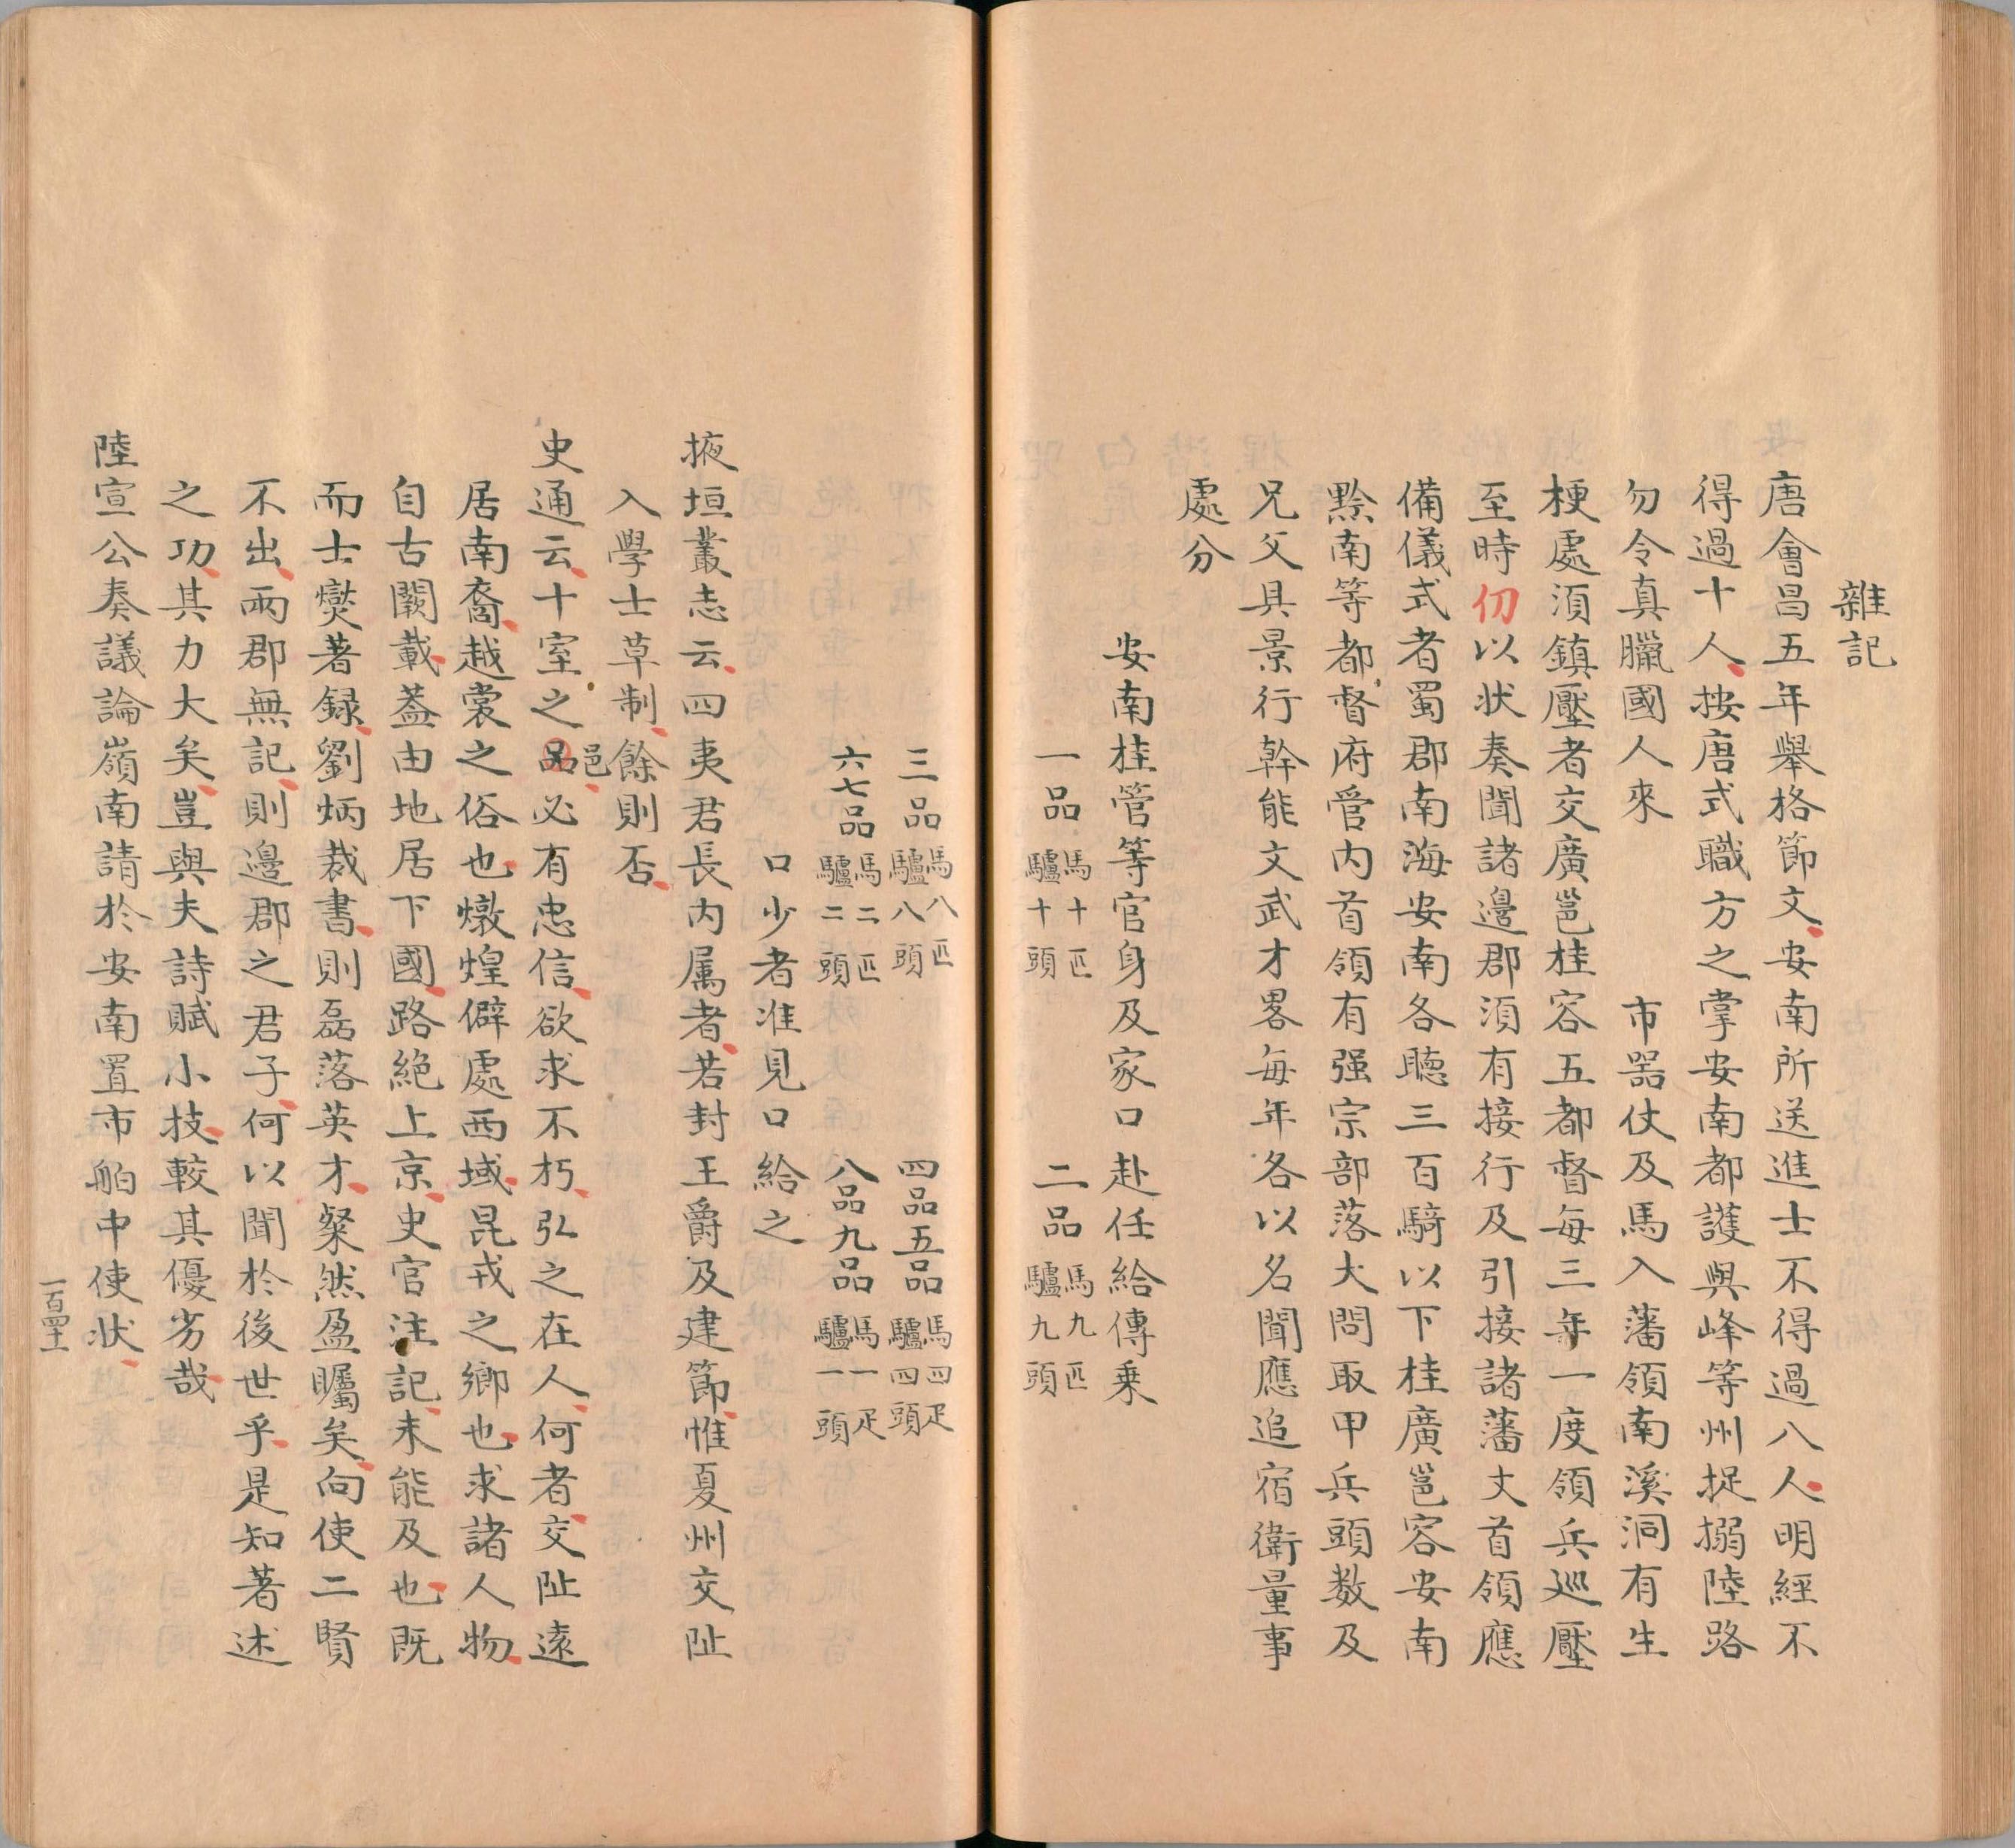 雜記
唐會昌五年舉格節文安南所送進士不得過八人明經不
得過十人按唐式職方之掌安南都護與峰等州捉搦陸路
勿令真臘國人來　市器仗及馬入藩領南溪洞有生
梗處湏鎮壓者交廣邕桂容五都督每三年一度領兵巡壓
至時仞以状奏聞諸邊郡湏有接行及引接諸藩丈首領應
備儀式者蜀郡南海安南各聽三百騎以下桂廣邕容安南
黔南等都督府管内首領有强宗部落大問取甲兵頭数及
兄父具景行幹能文武才畧每年各以名聞應追宿衛量事
處分
安南桂管等官身及家口赴任給傳乗
一品馬十匹驢十頭　二品馬九匹驢九頭
三品馬八匹驢八頭　四品五品馬四疋驢四頭
六七品馬二匹驢二頭　八品九品馬一疋驢一頭
口少者准見口給之
掖垣叢志云四夷君長内属者若封王爵及建節惟夏州交阯
入學士草制餘則否
史通云十室之品邑必有忠信欲求不朽弘之在人何者交阯遠
居南裔越裳之俗也燉煌僻處西域昆戎之鄉也求諸人物
自古闕載蓋由地居下國路絶上京史官注記未能及也既
而士爕著録劉炳裁書則磊落英才粲然盈矚矣向使二賢
不出兩郡無記則邊郡之君子何以聞於後世乎是知著述
之功其力大矣豈與夫詩賦小技較其優劣哉
陸宣公奏議論嶺南請於安南置市舶中使状
一百四十